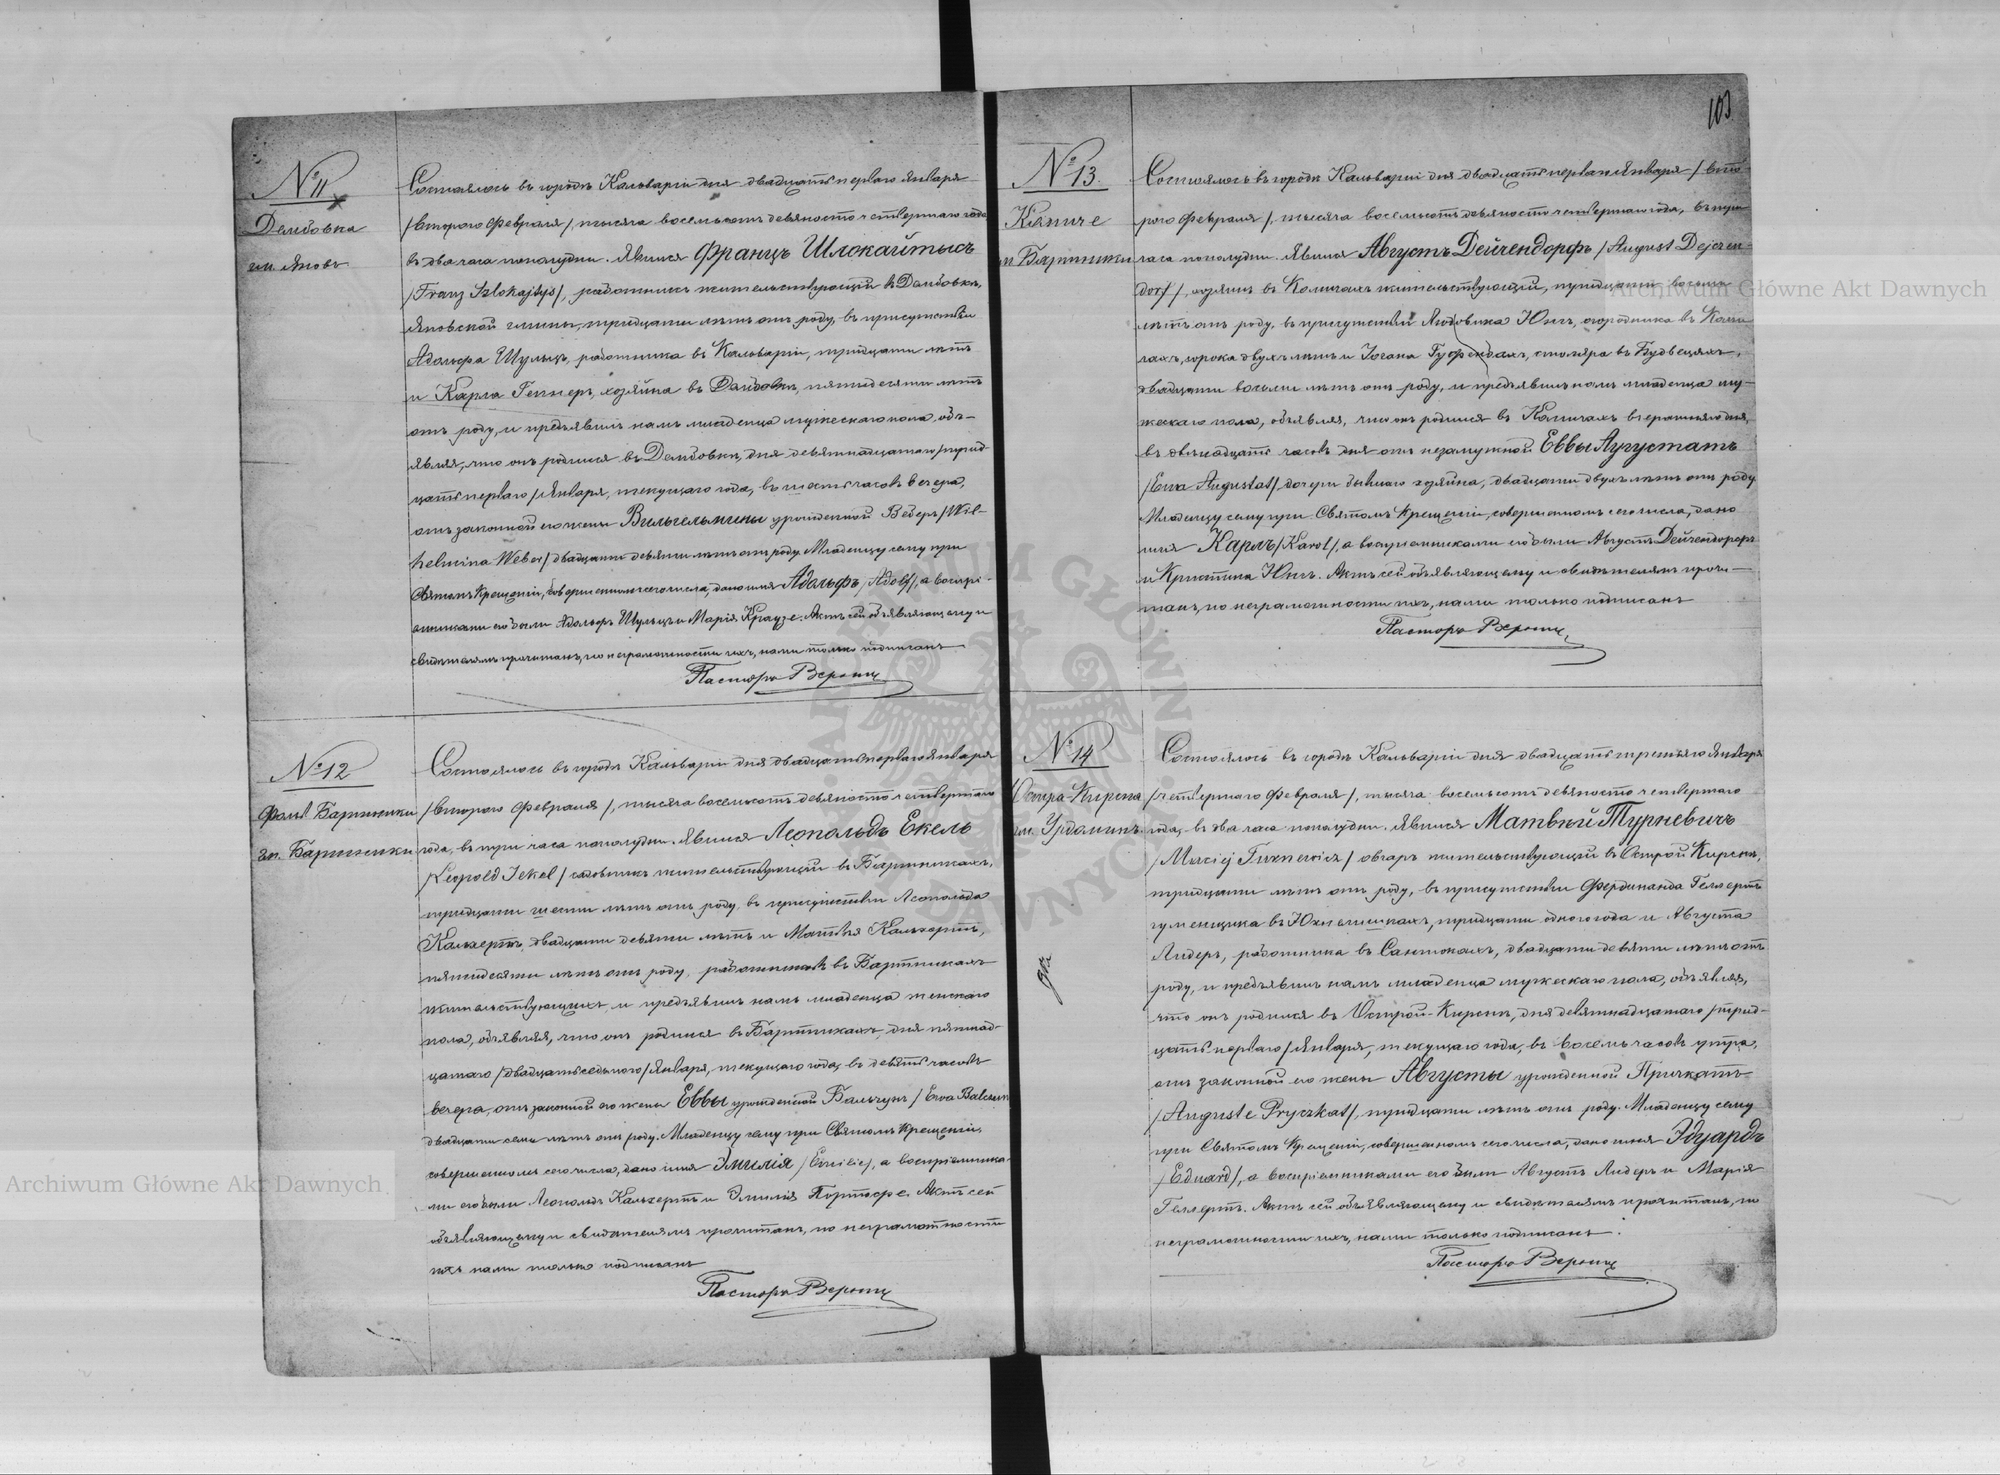 103
№ 11
Дембовка
гм. Яновъ
Состоялось въ городѣ Кальваріи дня двадцать перваго Января
/втораго Февраля/, тысяча восемьсотъ девяносто четвертаго года
въ два часа пополудни. Явился Францъ Шлокайтысъ
/Franz Szlokajtys/, работникъ жительствующій въ Дембовкѣ,
Яновской гмины, тридцати лѣтъ отъ роду, въ присутствіи
Адольфа Шульцъ, работника въ Кальваріи, тридцати лѣтъ
и Карла Геннеръ, хозяина въ Дембовкѣ, пятидесяти лѣтъ
отъ роду, и предъявилъ намъ младенца мужескаго пола, объ-
являя, что онъ родился въ Дембовкѣ, дня девятнадцатаго /трид-
цать перваго/ Января, текущаго года, въ шесть часовъ вечера,
отъ законной его жены Вильгельмины урожденной Веберъ /Wil-
helmina Weber/ двадцати девяти лѣтъ отъ роду. Младенцу сему при
Святомъ Крещеніи, совершенномъ сего числа, дано имя Адольфъ /Adolf/, а воспрі-
емниками его были Адольфъ Шульцъ и Марія Краузе. Актъ сей объявляющему и
свидѣтелямъ прочитанъ, по неграмотности ихъ, нами только подписанъ
Пасторъ
№ 12
Фольв. Бартники
гм. Бартники
Состоялось въ городѣ Кальваріи дня двадцать перваго Января
/втораго Февраля/, тысяча восемьсотъ девяносто четвертаго
года, въ три часа пополудни. Явился Леопольдъ Екель
/Leopold Jekel/ садовникъ жительствующій въ Бартникахъ,
тридцати шести лѣтъ отъ роду, въ присутствіи Леопольда
Кальхертъ, двадцати девяти лѣтъ и Матвѣя Кальхертъ,
пятидесяти лѣтъ отъ роду, работниковъ въ Бартникахъ
жительствующихъ, и предъявилъ намъ младенца женскаго
пола, объявляя, что онъ родился въ Бартникахъ, дня пятнад-
цатаго /двадцать седьмого/ Января, текущаго года, въ девять часовъ
вечера, отъ законной его жены Еввы урожденной Бальчунъ /Ewa Balczun
двадцати семи лѣтъ отъ роду. Младенцу сему при Святомъ Крещеніи,
совершенномъ сего числа, дано имя Эмилія /Emilie/, а воспріемника-
ми его были Леопольдъ Кальхертъ и Эмилія. Актъ сей
объявляющему и свидѣтелямъ прочитанъ, по неграмотности
ихъ нами только подписанъ
Пасторъ
№ 13.
гм. Бартники
Состоялось въ городѣ Кальваріи дня двадцать перваго Января /вто-
рого Февраля/, тысяча восемьсотъ девяносто четвертаго года, въ три
часа пополудни. Явился Августъ Дейчендорфъ /August Dejczen-
dorf/, хозяинъ въ жительствующій, тридцати восьми
лѣтъ отъ роду, въ присутствіи Людовика Юнгъ, огородника въ
сорока двухъ лѣтъ и Іогана столяра въ Будвецяхъ,
двадцати восьми лѣтъ отъ роду, и предъявилъ намъ младенца му-
жескаго пола, объявляя, что онъ родился въ вчерашняго дня,
въ двѣнадцать часовъ дня отъ незамужной Еввы Аугустатъ
/Ewa Augustat/ дочери бывшаго хозяина, двадцати двухъ лѣтъ отъ роду
Младенцу сему при Святомъ Крещеніи, совершенномъ сего числа, дано
имя Карлъ /Karol/, а воспріемниками его были Августъ Дейчендорфъ
и Кристина Юнгъ. Актъ сей объявляющему и свидѣтелямъ прочи-
танъ, по неграмотности ихъ, нами только подписанъ
Пасторъ
№ 14
Остра-Кирсна
гм. Урдоминъ
Состоялось въ городѣ Кальваріи дня двадцать третьяго Января
/четвертаго Февраля/, тысяча восемьсотъ девяносто четвертаго
года, въ два часа пополудни. Явился Матвѣй Турневичъ
/Maciej Turnewicz/ овчаръ жительствующій въ Острой Кирснѣ,
тридцати лѣтъ отъ роду, въ присутствіи Фердинанда Геллертъ
гуменщика въ тридцати одного года и Августа
Лидеръ, работника въ Сантокахъ, двадцати девяти лѣтъ отъ
роду, и предъявилъ намъ младенца мужескаго пола, объявляя,
что онъ родился въ Острой-Кирснѣ, дня девятнадцатаго /трид-
цать перваго/ Января, текущаго года, въ восемь часовъ утра,
отъ законной его жены Августы урожденной Причкатъ
/Auguste Pryczkat/, тридцати лѣтъ отъ роду. Младенцу сему
при Святомъ Крещеніи, совершенномъ сего числа, дано имя Эдуардъ
/Eduard/, а воспріемниками его были Августъ Лидеръ и Марія
Геллертъ. Актъ сей объявляющему и свидѣтелямъ прочитанъ, по
неграмотности ихъ, нами только подписанъ.
Пасторъ
Archiwum Główne Akt Dawnych
Archiwum Główne Akt Dawnych
ARCHIWUM GŁÓWNE AKT DAWNYCH